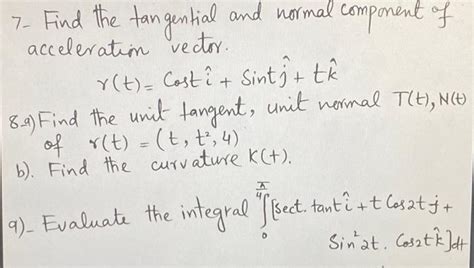 7- Find the tangential and normal component of
acceleration vector.
r(t) = Cost î + Sint ĵ + t k̂
8-a) Find the unit tangent, unit normal T(t), N(t)
of r(t) = (t, t², 4)
b). Find the curvature K(t).
9)- Evaluate the integral ∫₀^(π/4) [sect. tant î + t Cos2t ĵ +
Sin²2t. Cos2t k̂] dt